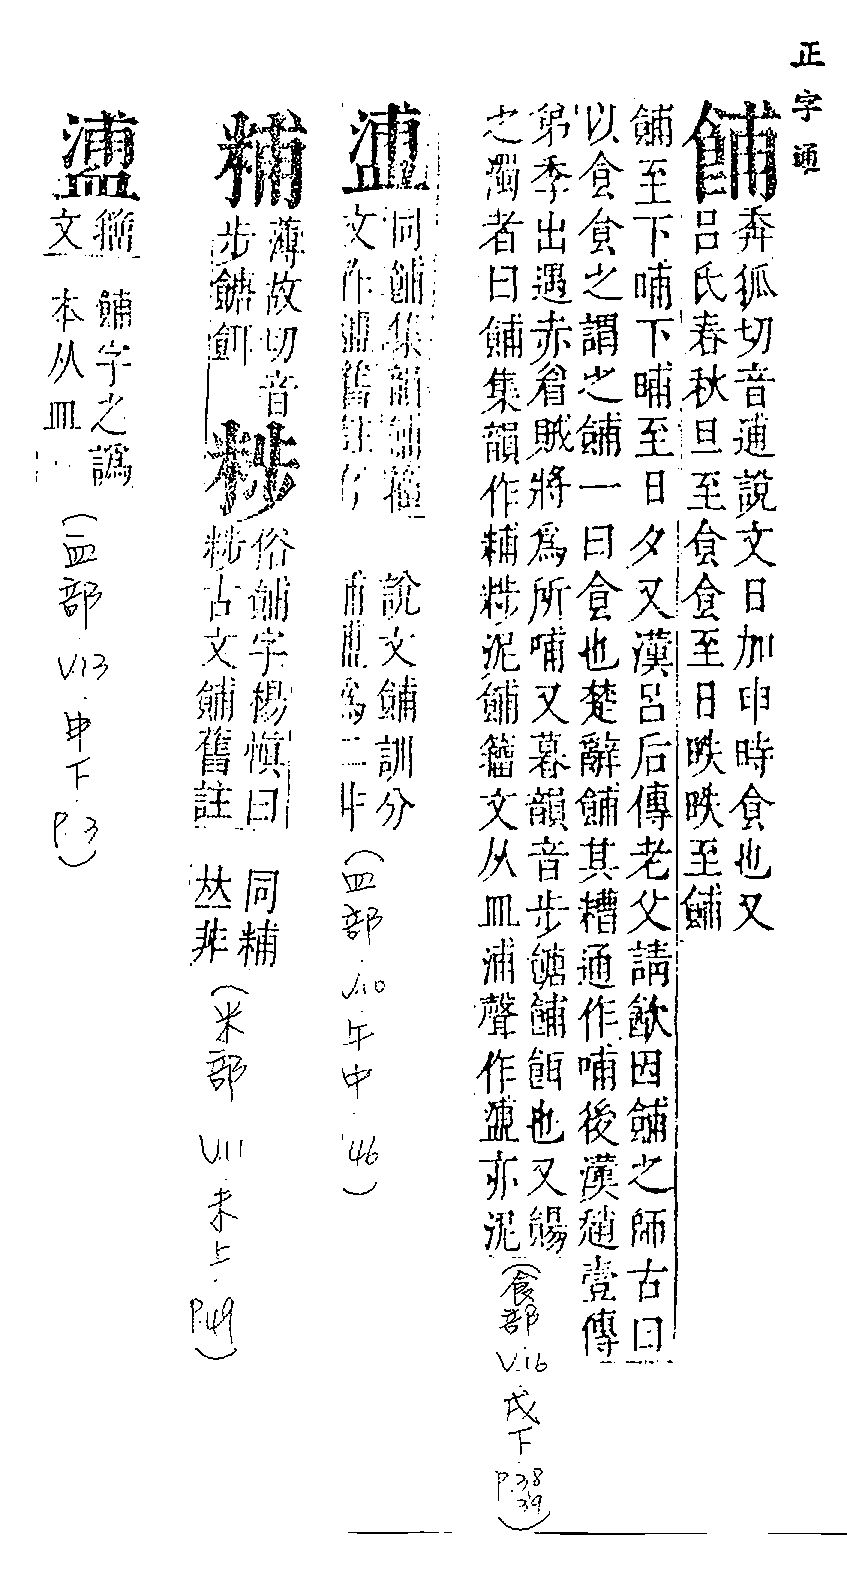 正字通
餔
奔狐切音逋說文日加申時食也又
呂氏春秋旦至食食至日昳昳至餔
餔至下晡下晡至日夕又漢呂后傳老父請飲因餔之師古曰
以食食之謂之餔一曰食也楚辭餔其糟通作哺後漢趙壹傳
第季出遇赤眉賊將爲所哺又暮韻音步餹餔餌也又餳
之濁者曰餔集韻作䊇𥹴泥餔籀文从皿浦聲作𥂈亦泥
(食部 V.16 戌下 P.38 39)
𥂈
同餔集韻餔籀 說文餔訓分
文作𥂈舊註
(皿部 V.10 午中 46)
䊇
薄故切音
步餹餌
𥹴
俗餔字楊慎曰 同䊇
𥹴古文餔舊註 𠀤非
(米部 V.11 未上 P.49)
𥂈
籀 餔字之譌
文 本从皿
(皿部 V.13 申下 P.3)